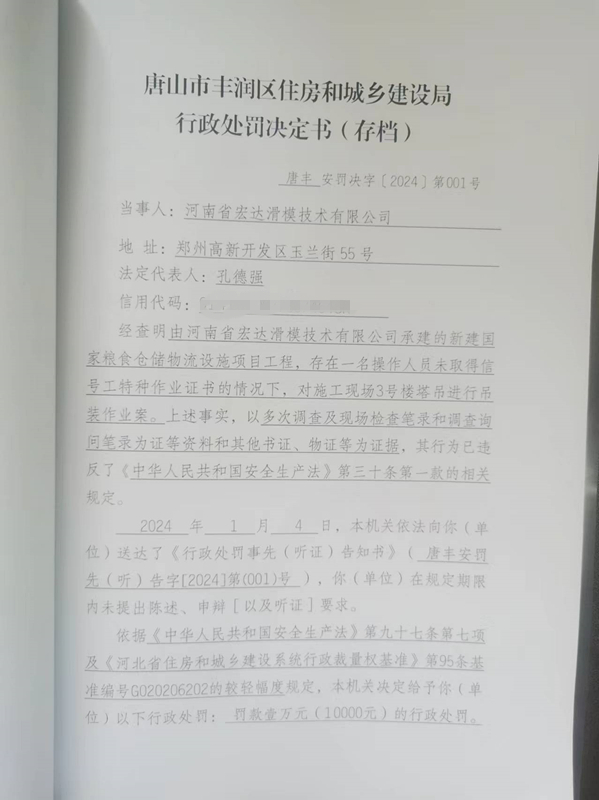 唐山市丰润区住房和城乡建设局
行政处罚决定书（存档）
唐丰 安罚决字〔2024〕第001号
当事人：河南省宏达滑模技术有限公司
地 址：郑州高新开发区玉兰街55号
法定代表人：孔德强
信用代码：
经查明由河南省宏达滑模技术有限公司承建的新建国
家粮食仓储物流设施项目工程，存在一名操作人员未取得信
号工特种作业证书的情况下，对施工现场3号楼塔吊进行吊
装作业案。上述事实，以多次调查及现场检查笔录和调查询
问笔录为证等资料和其他书证、物证等为证据，其行为已违
反了《中华人民共和国安全生产法》第三十条第一款的相关
规定。
2024 年 1 月 4 日，本机关依法向你（单
位）送达了《行政处罚事先（听证）告知书》（ 唐丰安罚
先（听）告字[2024]第(001)号 ），你（单位）在规定期限
内未提出陈述、申辩［以及听证］要求。
依据《中华人民共和国安全生产法》第九十七条第七项
及《河北省住房和城乡建设系统行政裁量权基准》第95条基
准编号G020206202的较轻幅度规定，本机关决定给予你（单
位）以下行政处罚： 罚款壹万元（10000元）的行政处罚。